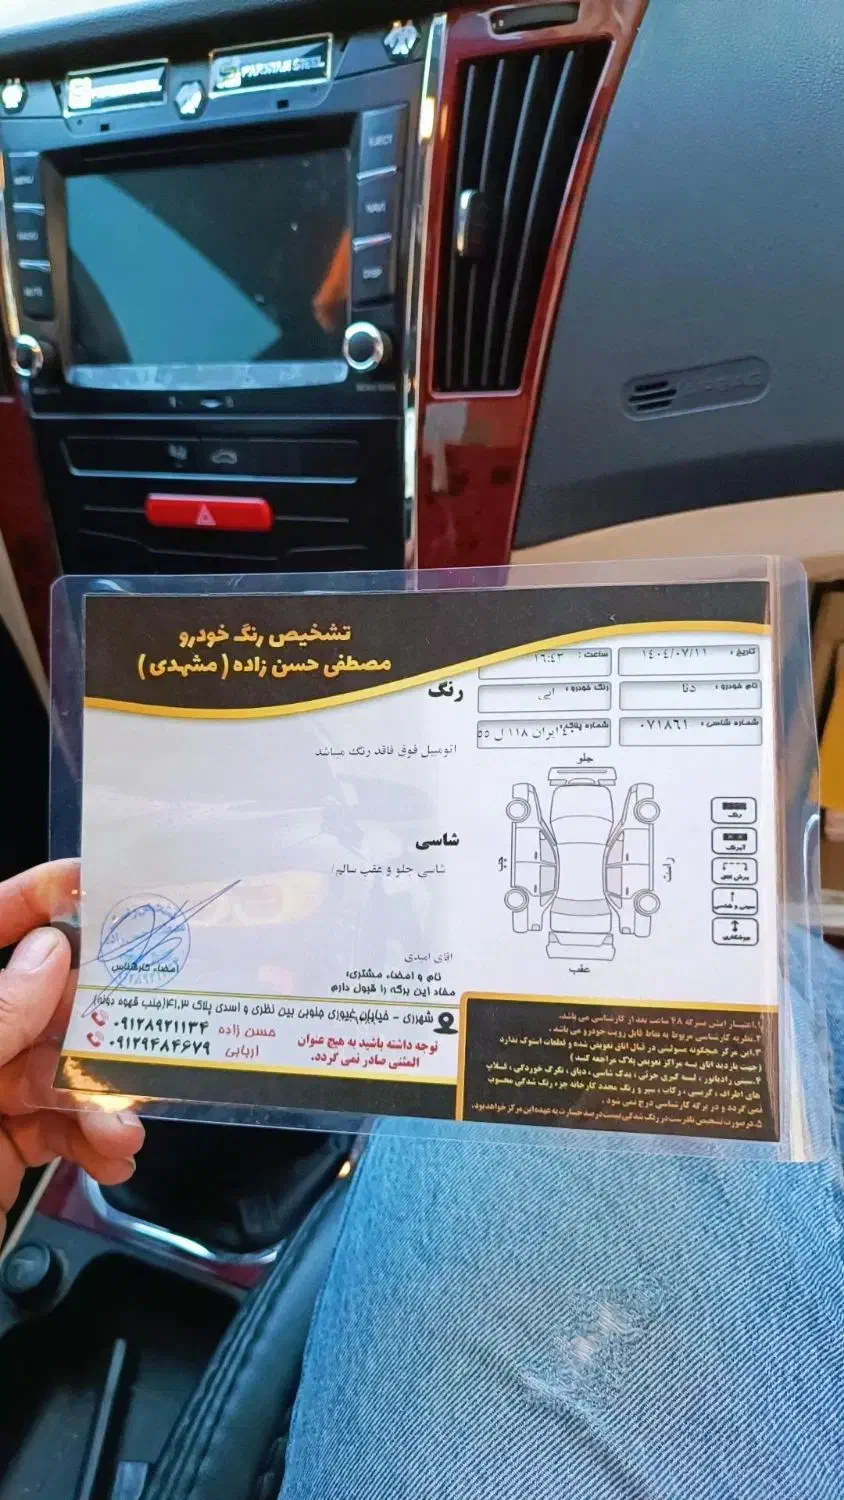 PARNYAN STEEL
EJECT
NAVI
DISP
MENU
RADIO
MUTE
تشخیص رنگ خودرو
مصطفی حسن زاده ( مشهدی )
تاریخ : ۱۴۰۴/۰۷/۱۱
ساعت : ۱۶:۴۳
نام خودرو : دنا
رنگ خودرو : ابی
شماره شاسی : ۰۷۱۸۶۱
شماره پلاک : ۴۰ ایران ۱۱۸ ل ۵۵
رنگ
اتومبیل فوق فاقد رنگ میباشد
شاسی
شاسی جلو و عقب سالم/
جلو
چپ
راست
عقب
رنگ
آبرنگ
برش اتاق
سینی و شاسی
جوشکاری
اقای امیدی
نام و امضاء مشتری:
مفاد این برگه را قبول دارم
امضاء کارشناس
شهرری - خیابان غیوری جنوبی بین نظری و اسدی پلاک ۴۱.۳(جنب قهوه دونه)
۰۹۱۲۸۹۲۱۱۳۴ حسن زاده
۰۹۱۲۹۴۸۴۶۷۹ اربابی
توجه داشته باشید به هیچ عنوان
المثنی صادر نمی گردد.
۱.اعتبار این برگه ۴۸ ساعت بعد از کارشناسی می باشد.
۲.نظریه کارشناسی مربوط به نقاط قابل رویت خودرو می باشد .
۳.این مرکز هیچگونه مسولیتی در قبال اتاق تعویض شده و قطعات استوک ندارد
(جهت بازدید اتاق به مراکز تعویض پلاک مراجعه کنید )
۴.سینی رادیاتور ، لیسه گیری جزئی ، یدک شاسی ، دیاق ، تگرگ خوردگی ، گلگیر
های اطراف ، گریسی ، رکاب ، سپر و رنگ مجدد کارخانه جزء رنگ شدگی محسوب
نمی گردد و در برگه کارشناسی درج نمی شود .
۵.در صورت تشخیص نادرست در رنگ شدگی بیست درصد خسارت به عهده این مرکز خواهد بود.